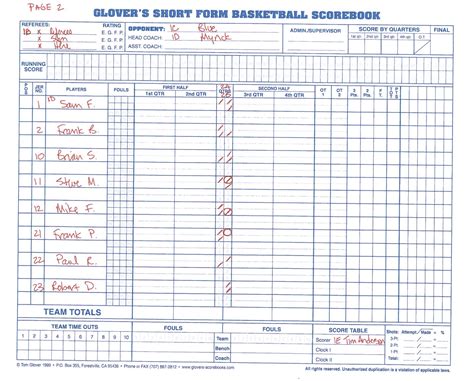 PAGE 2
GLOVER'S SHORT FORM BASKETBALL SCOREBOOK
REFEREES: RATING OPPONENT: 1C Blue ADMIN./SUPERVISOR SCORE BY QUARTERS FINAL
1B x E G F P HEAD COACH 1D Myrick 1st Qtr. 2nd Qtr. 3rd Qtr. 4th Qtr. O.T.
x Sam E G F P ASST. COACH
x E G F P
RUNNING SCORE
POS JER. NO. PLAYERS FOULS FIRST HALF 2A SECOND HALF OT 1 OT 2 3 Pts. 2 Pts. F.T. TOT PTS
1st QTR 2nd QTR 2B 3rd QTR 4th QTR
1 1D Sam F.
2 Frank B.
10 Brian S.
11 Steve M.
12 Mike F.
21 Frank P.
22 Paul R.
23 Robert D.
TEAM TOTALS
TEAM TIME OUTS FOULS FOULS SCORE TABLE Shots: Attempt / Made = %
1 2 3 4 5 6 7 8 9 10 Team Scorer 1E Tim Anderson
Bench Clock I
Clock II
© Tom Glover 1989 • P.O. Box 355, Forestville, CA 95436 • Phone or FAX (707) 887-2812 • www.glovers-scorebooks.com All rights reserved. Unauthorized duplication is a violation of applicable laws.